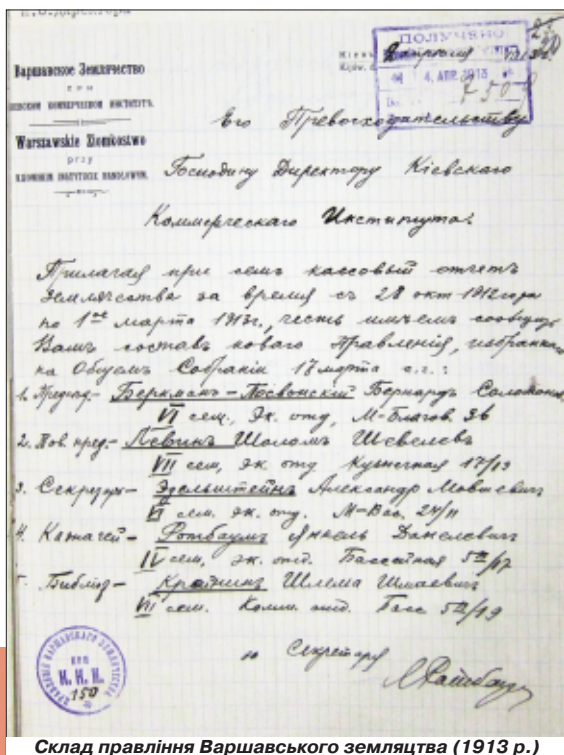 Варшавское Землячество
при
КІЕВСКОМ КОММЕРЧЕСКОМ ИНСТИТУТѢ.
Warszawskie Ziomkostwo
przy
KIJOWSKIM INSTYTUCIE HANDLOWYM.
Кіев
Kijów,
ПОЛУЧЕНО
4 АПР. 1913
Его Превосходительству
Господину Директору Кіевскаго
Коммерческаго Института.
Прилагая при семъ кассовый отчетъ
Землячества за время съ 28 окт 1912 года
по 1ое марта 1913г., честь имѣемъ сообщить
Вамъ составъ новаго Правленія, избраннаго
на Общемъ Собраніи 17 марта с.г.:
1. Предсѣд.- Беркманъ- Бернардъ Соломонов
VI сем., Эк. отд, М-Благов. 36
2. Тов. пред.- Левинъ Шоломъ Шевелевъ
VII сем, эк. отд Кузнечная 17/19
3. Секретарь- Эдельштейнъ Александръ Мовшевичъ
VI сем. эк. отд. М-Вас. 24/11
4. Казначей- Ротбаумъ Янкель Данелевичъ
IV сем, эк. отд. Бассейная 5
5. Библіот- Крайнинъ Шлема Шмаевичъ
VII сем. Комм. отд. Басс
Секретаря
К. К. И.
150
Склад правління Варшавського земляцтва (1913 р.)